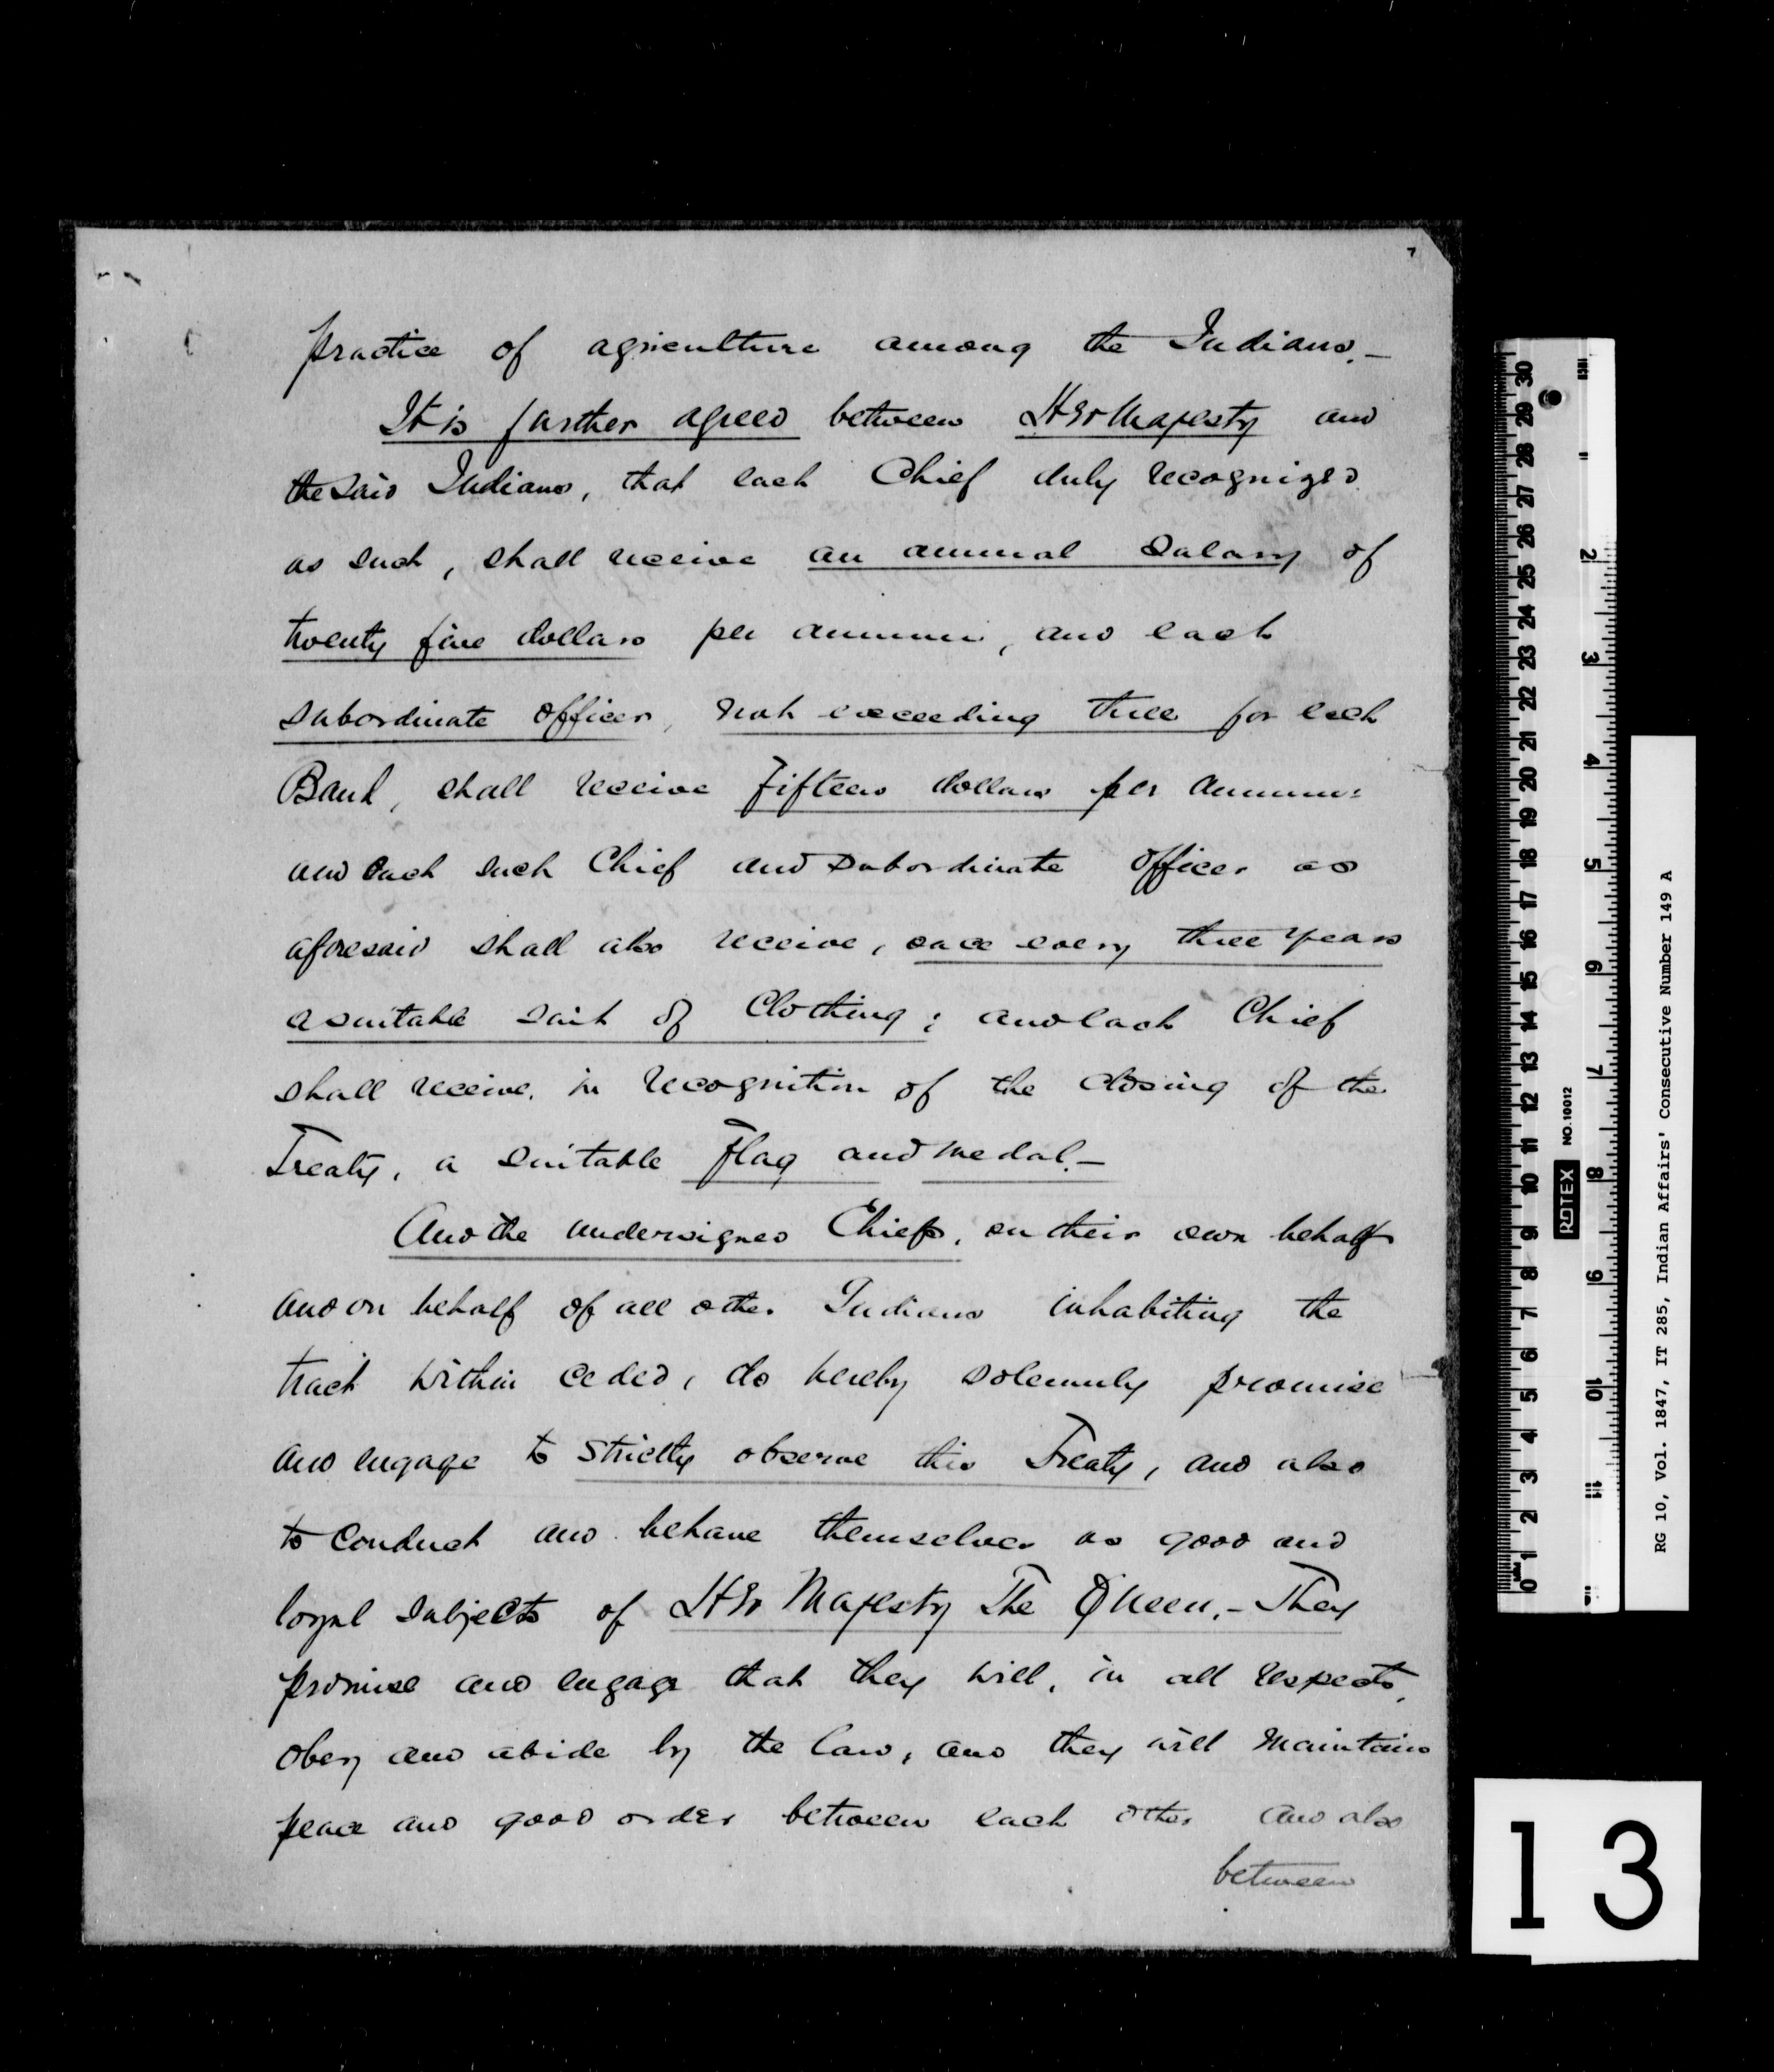 7
practice of agriculture among the Indians.—
It is further agreed between Her Majesty and
the said Indians, that each Chief duly recognized
as such, shall receive an annual Salary of
twenty five dollars per annum, and each
subordinate officer, not exceeding three for each
Band, shall receive Fifteen dollars per annum:
and each such Chief and subordinate officer as
aforesaid shall also receive, once every three years
a suitable suit of Clothing; and each Chief
shall receive, in recognition of the closing of the
Treaty, a suitable Flag and medal.—
And the undersigned Chiefs, on their own behalf
and on behalf of all other Indians inhabiting the
tract within ceded, do hereby solemnly promise
and engage to strictly observe this Treaty, and also
to conduct and behave themselves as good and
loyal subjects of Her Majesty The Queen.— They
promise and engage that they will, in all respects,
obey and abide by the law, and they will maintain
peace and good order between each other and also
between
30 29 28 27 26 25 24 23 22 21 20 19 18 17 16 15 14 13 12 11 10 9 8 7 6 5 4 3 2 1 0
2 3 4 5 6 7 8 9 10 11
ROTEX NO. 10012
RG 10, Vol. 1847, IT 285, Indian Affairs' Consecutive Number 149 A
13